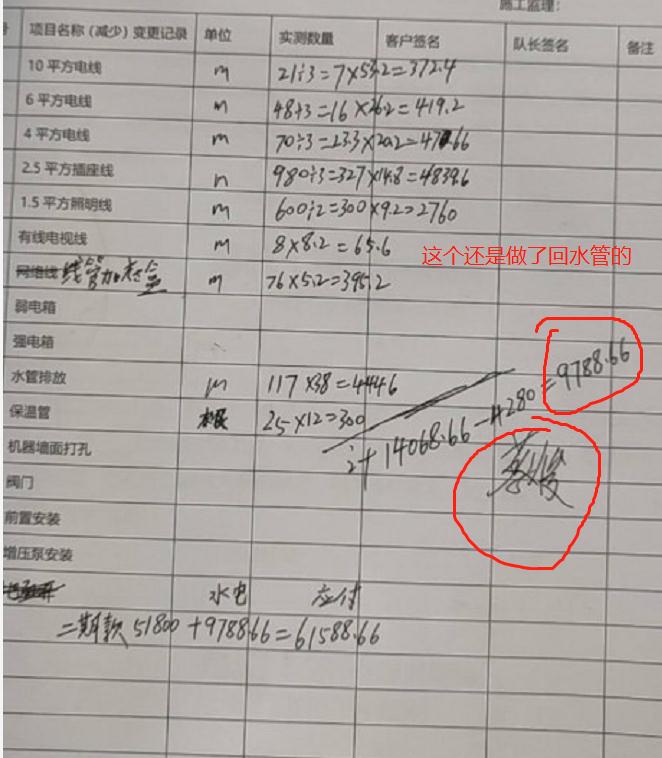 施工监理：
号 项目名称（减少）变更记录 单位 实测数量 客户签名 队长签名 备注
10平方电线 m 21÷3=7×53.2=372.4
6平方电线 m 48÷3=16×26.2=419.2
4平方电线 m 70÷3=23.3×20.2=470.66
2.5平方插座线 m 980÷3=327×14.8=4839.6
1.5平方照明线 m 600÷2=300×9.2=2760
有线电视线 m 8×8.2=65.6
这个还是做了回水管的
网络线 线管加底盒 m 76×5.2=395.2
弱电箱
强电箱
水管排放 m 117×38=4446
保温管 根 25×12=300
计 14068.66-4280=9788.66
机器墙面打孔
阀门
前置安装
增压泵安装
水电 应付
二期款 51800+9788.66=61588.66